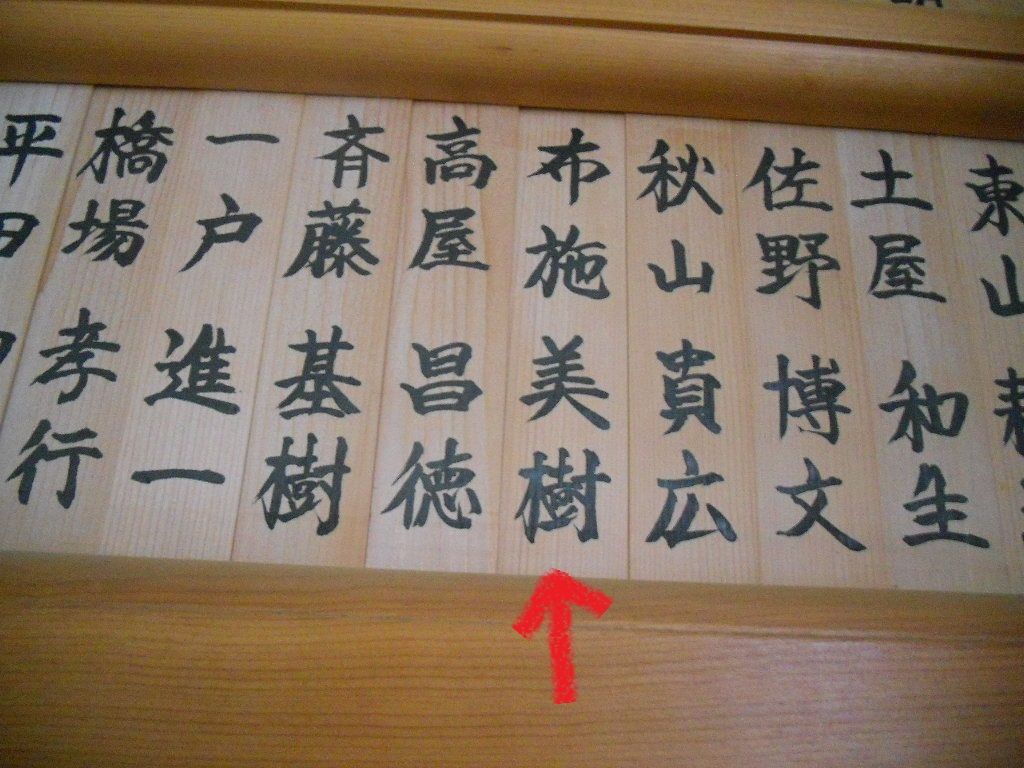 東山
土屋 和生
佐野 博文
秋山 貴広
布施 美樹
高屋 昌徳
斉藤 基樹
一戸 進一
橋場 孝行
平田